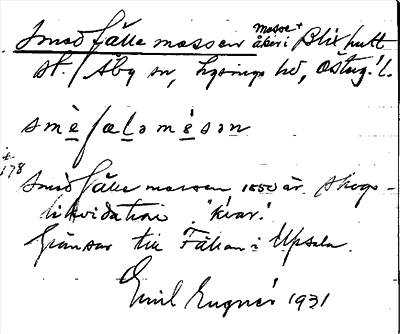 Smedfällemossen mosse + åker i Blixhult
st. / Åby sn, Lysings hd, Östug. l.
smèfæləmésən
178
Smedfälle mossen 1850 år. Skogs-
likvidation "kvar".
Gränsar till Fållan i Upsala.
Emil Lugner 1931